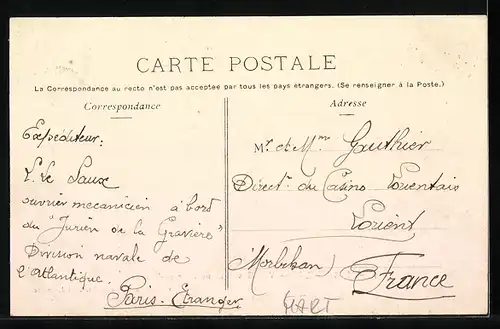 CARTE POSTALE
La Correspondance au recto n'est pas acceptée par tous les pays étrangers. (Se renseigner à la Poste.)
Correspondance
Expéditeur:
L. Le Saux
ouvrier mecanicien à bord
du "Jurien de la Gravière"
Division navale de
l'Atlantique.
Paris-Etranger
Adresse
Mr et Mme Gauthier
Direct. du Casino Lorientais
Lorient
Morbihan)
France
MART